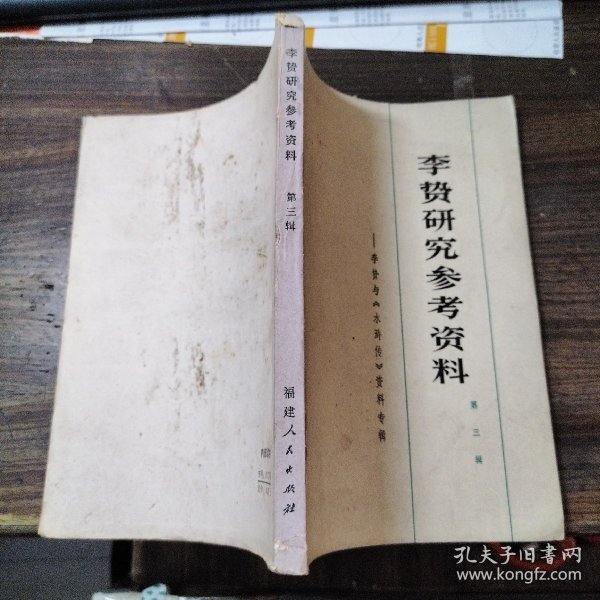 李贽研究参考资料
第三辑
——李贽与《水浒传》资料专辑
李贽研究参考资料
第三辑
福建人民出版社
孔夫子旧书网
www.kongfz.com